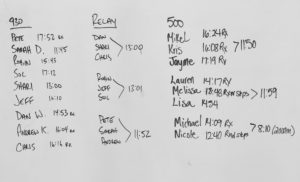 930
PETE 17:52 RX
SARAH D. 11:45
ROBIN 15:43
SOL 17:12
SHARI 13:00
JEFF 16:10
DAN W. 14:53 RX
ANDREW K. 16:04
CHRIS 16:16 RX
RELAY
DAN
SHARI
CHRIS
13:00
ROBIN
JEFF
SOL
13:01
PETE
SARAH
ANDREW
11:52
500
Mike L 16:24 RX
Kris 16:08 RX
Jayme 17:19 RX
11:50
Lauren 14:17 RX
Melissa 18:48 RX
Lisa 14:54
11:59
Michael 14:09 RX
Nicole 12:40
8:10